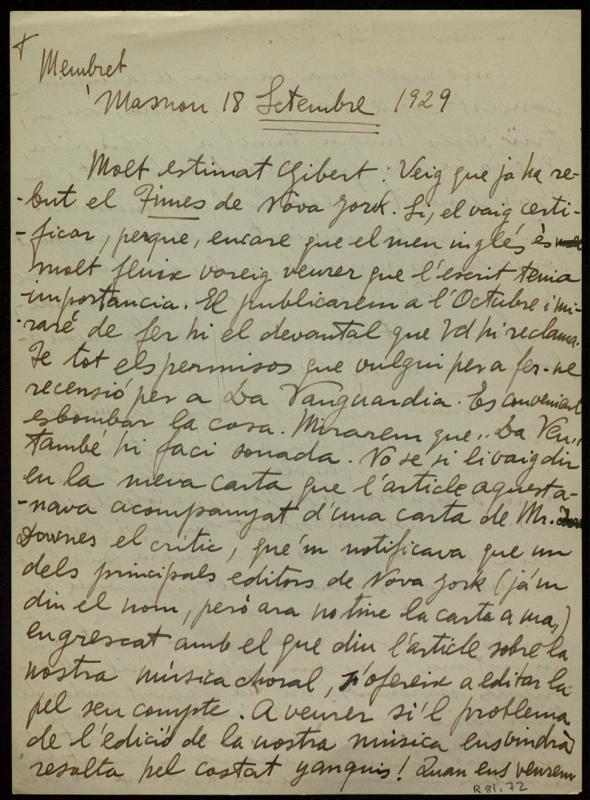 Membret
Masnou 18 Setembre 1929
Molt estimat Gibert: Veig que ja ha re-
-but el Times de Nova York. Si, el vaig certi-
-ficar, perque, encare que el meu inglés és
molt fluix vareig veurer que l'escrit tenia
importancia. El publicarem a l'Octubre i mi-
-raré de fer hi el devantal que Vd hi reclama.
Te tot els permisos que vulgui per a fer-ne
recensió per a La Vanguardia. Es convenient
esbombar la cosa. Mirarem que "La Veu"
també hi faci sonada. No se si li vaig dir
en la meva carta que l'article aquest a-
-nava acompanyat d'una carta de Mr.
Downes el critic, que'm notificava que un
dels principals editors de Nova York (ja'm
diu el nom, però ara no tinc la carta a ma,)
engrescat amb el que diu l'article sobre la
nostra música choral, s'ofereix a editar la
pel seu compte. A veurer si'l problema
de l'edició de la nostra música ens vindrà
resolta pel costat yanquis! Quan ens veurem
R 81.72